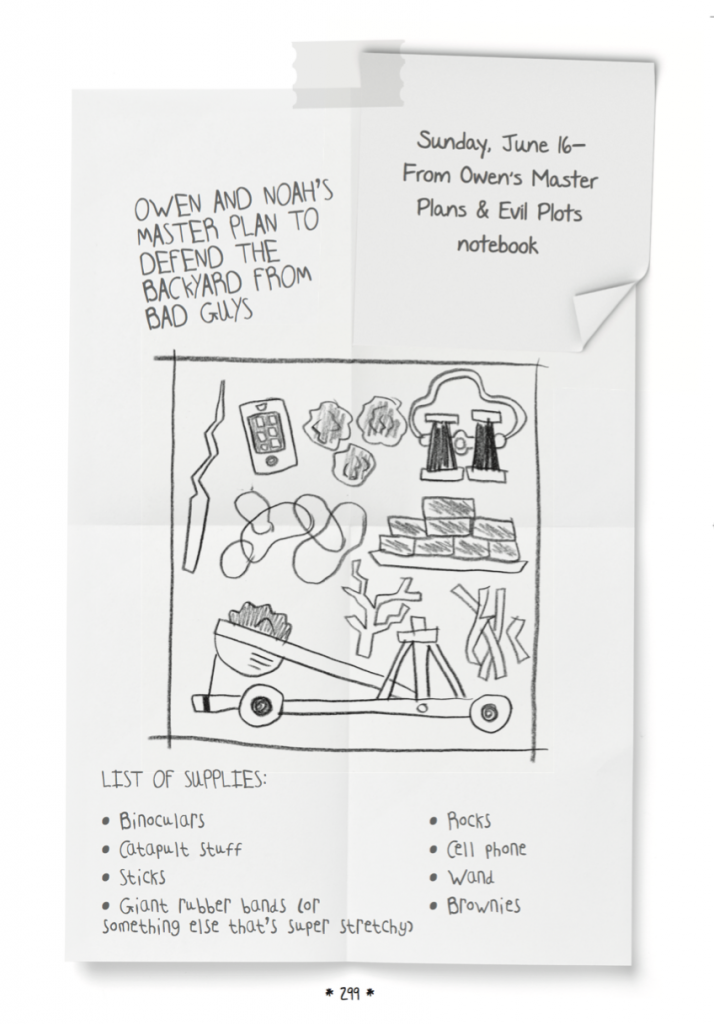 Sunday, June 16—
From Owen's Master
Plans & Evil Plots
notebook
OWEN AND NOAH'S
MASTER PLAN TO
DEFEND THE
BACKYARD FROM
BAD GUYS
LIST OF SUPPLIES:
• Binoculars
• Catapult stuff
• Sticks
• Giant rubber bands (or
something else that's super stretchy)
• Rocks
• Cell phone
• Wand
• Brownies
* 299 *